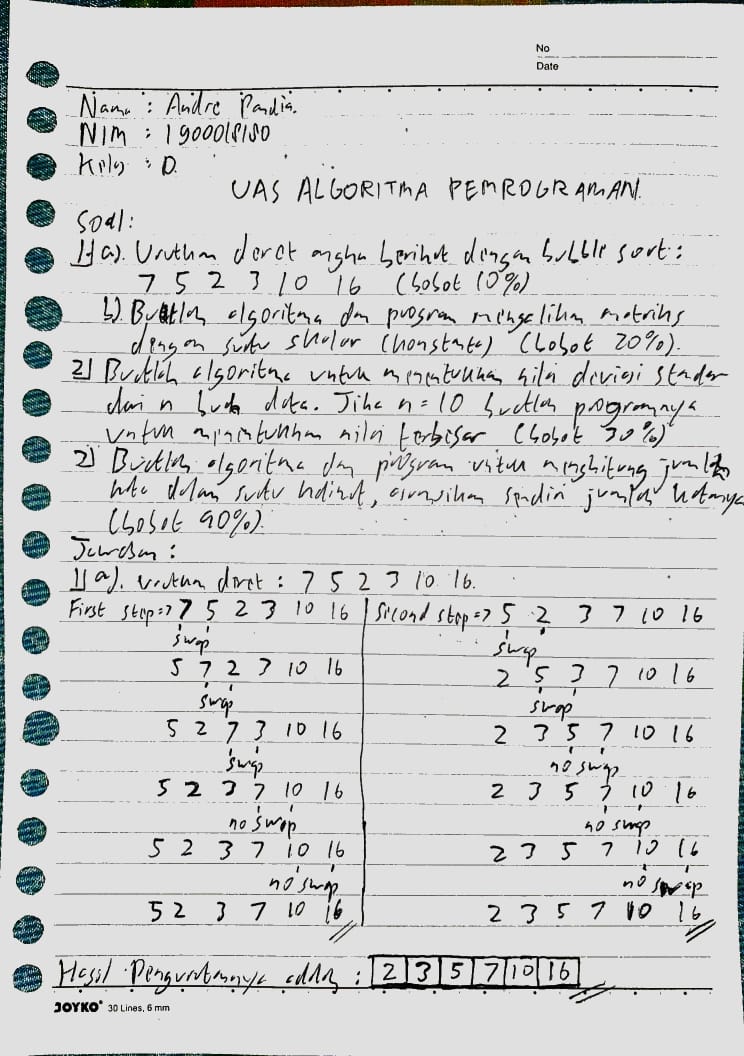 No
Date
Nama : Andre Pandia.
NIM : 1900018180
Kelas : D.
UAS ALGORITMA PEMROGRAMAN.
Soal:
1) a). Urutkan deret angka berikut dengan bubble sort :
7 5 2 3 10 16 (bobot 10%)
b). Buatlah algoritma dan program mengalikan matriks
dengan suatu skalar (konstanta) (bobot 20%).
2) Buatlah algoritma untuk menentukan nilai deviasi standar
dari n buah data. Jika n = 10 buatlah programnya
untuk menentukan nilai terbesar (bobot 30%)
2) Buatlah algoritma dan program untuk menghitung jumlah
kata dalam suatu kalimat, asumsikan sendiri jumlah katanya
(bobot 40%).
Jawaban :
1) a). urutkan deret : 7 5 2 3 10 16.
First step => 7 5 2 3 10 16
swap
5 7 2 3 10 16
swap
5 2 7 3 10 16
swap
5 2 3 7 10 16
no swap
5 2 3 7 10 16
no swap
5 2 3 7 10 16
Second step => 5 2 3 7 10 16
swap
2 5 3 7 10 16
swap
2 3 5 7 10 16
no swap
2 3 5 7 10 16
no swap
2 3 5 7 10 16
no swap
2 3 5 7 10 16
Hasil Pengurutannya adalah : 2 3 5 7 10 16
JOYKO 30 Lines, 6 mm